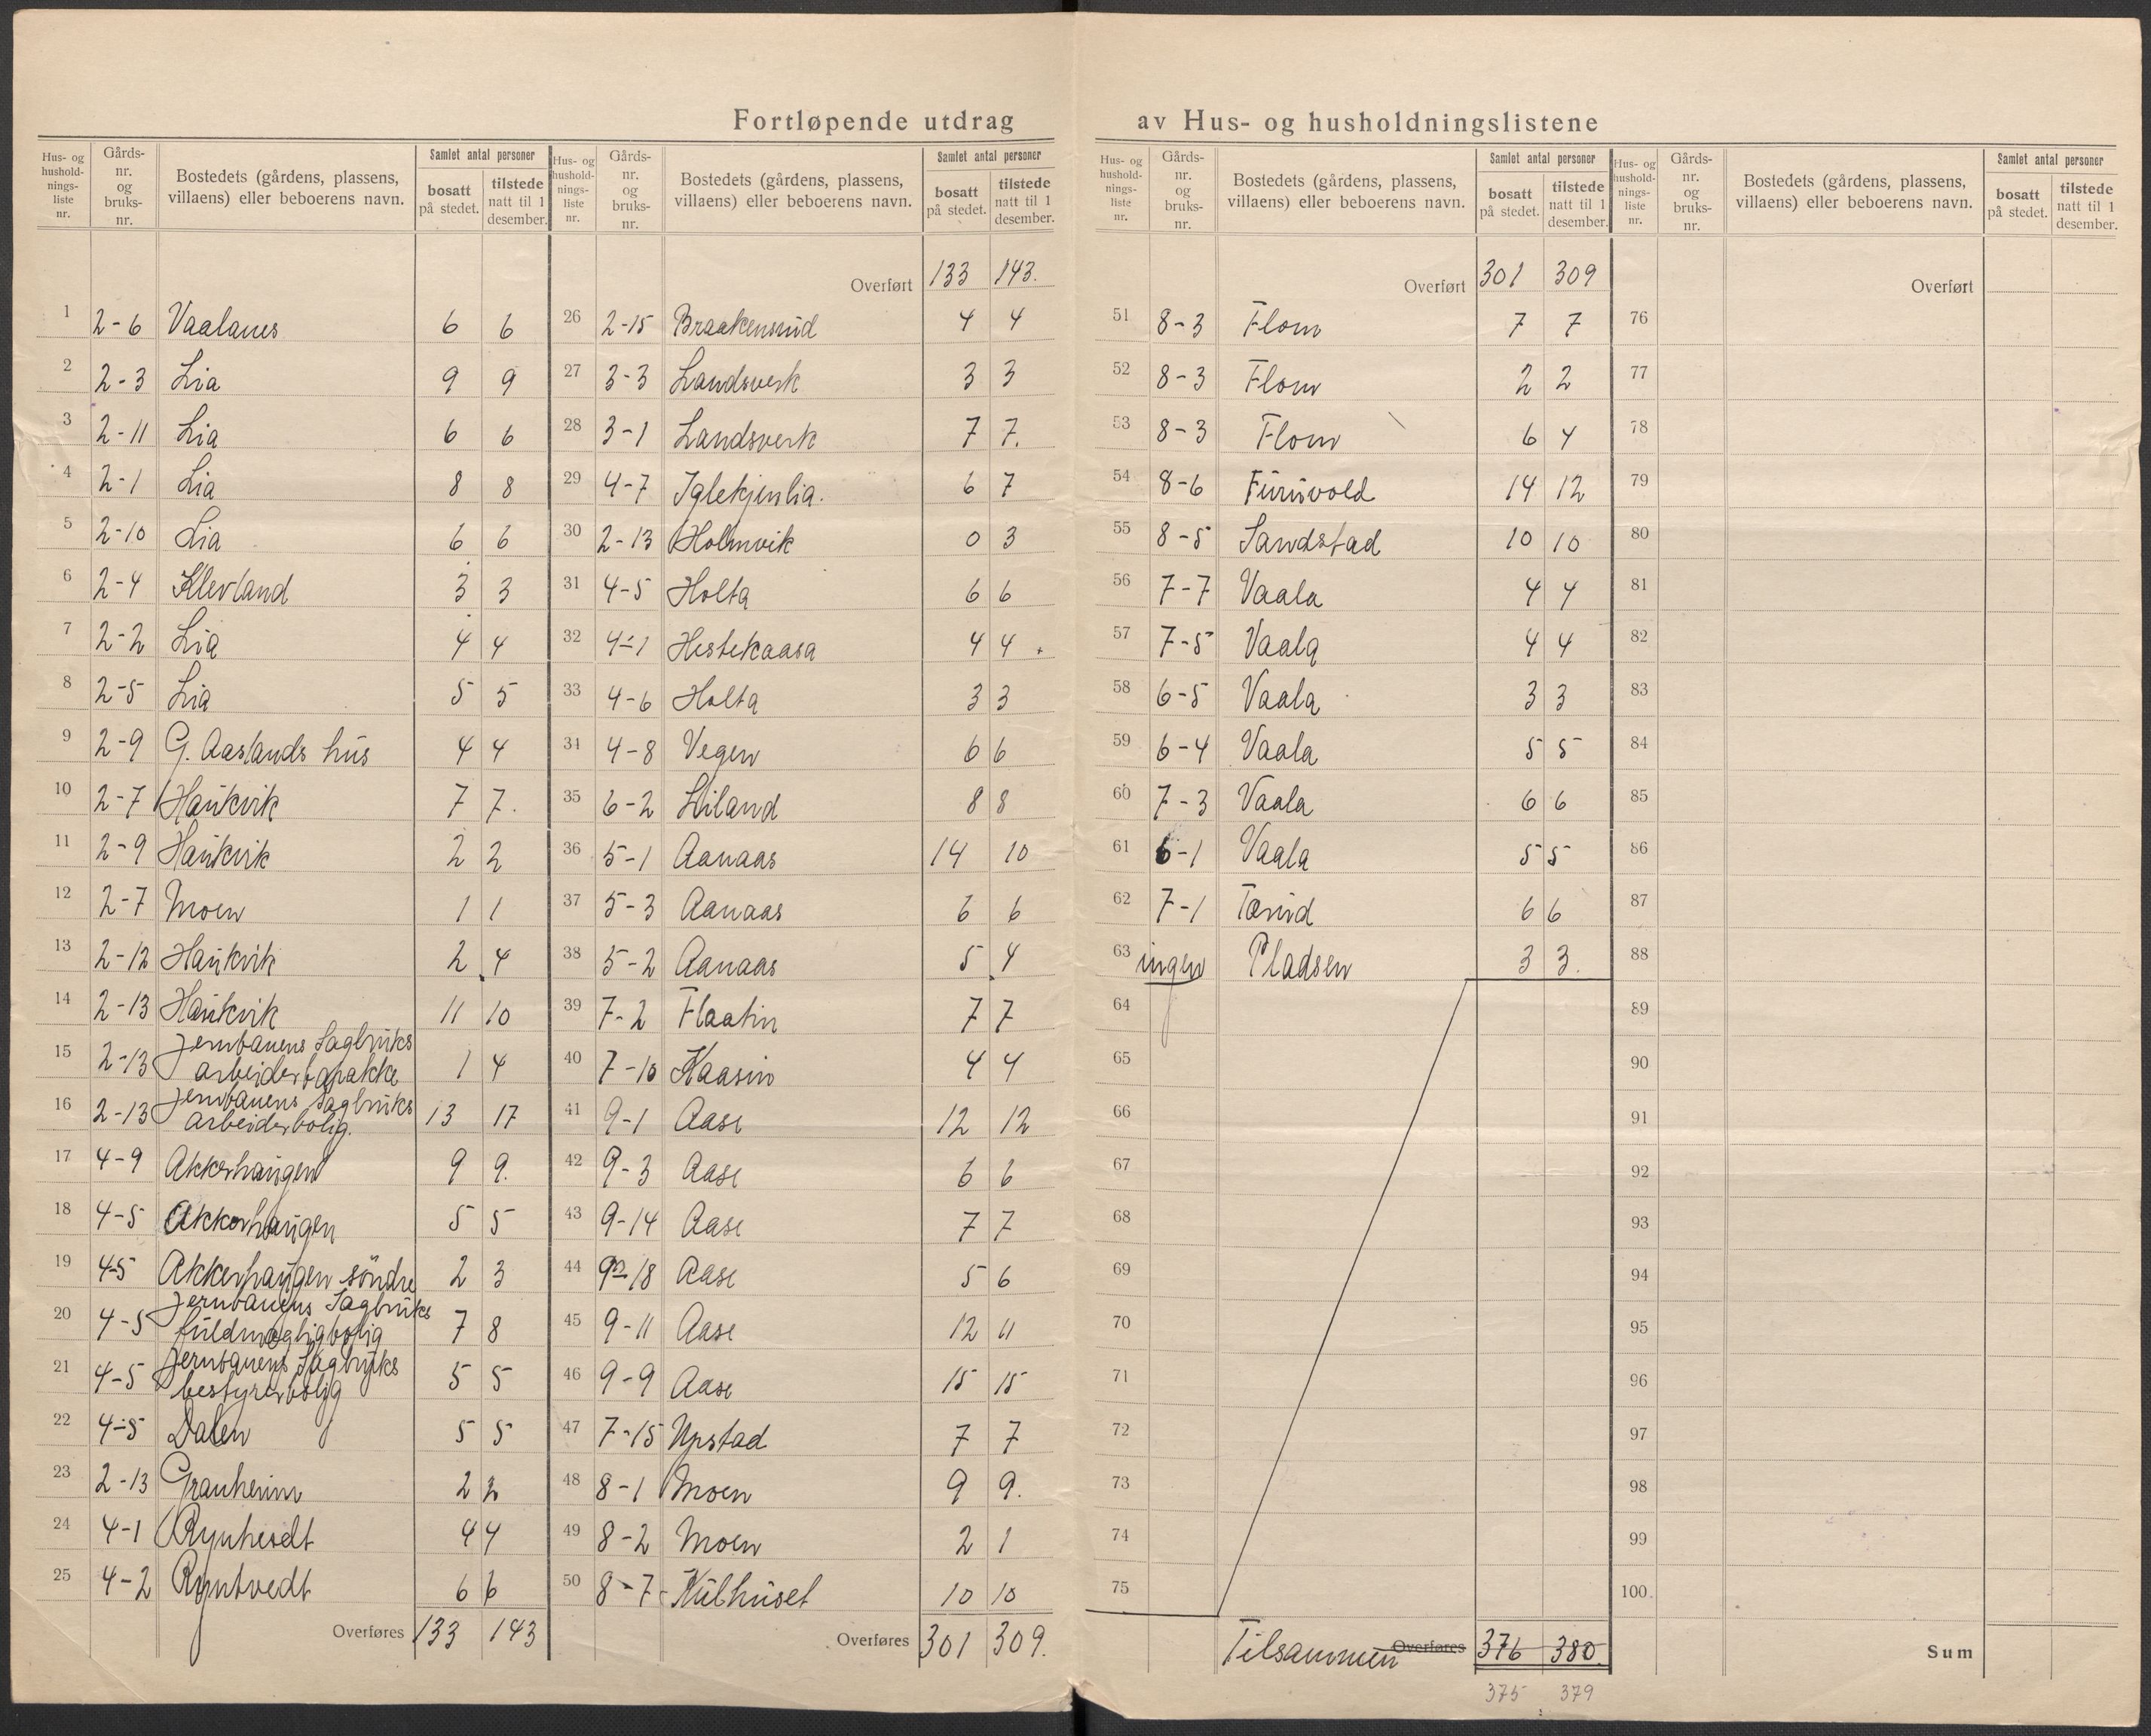 Fortløpende utdrag av Hus- og husholdningslistene
Hus- og husholdnings-liste nr. | Gårds-nr. og bruks-nr. | Bostedets (gårdens, plassens, villaens) eller beboerens navn. | Samlet antal personer | bosatt på stedet. | tilstede natt til 1 desember.
1 2-6 Vaalanes 6 6
2 2-3 Lia 9 9
3 2-11 Lia 6 6
4 2-1 Lia 8 8
5 2-10 Lia 6 6
6 2-4 Klevland 3 3
7 2-2 Lia 4 4
8 2-5 Lia 5 5
9 2-9 G. Aaslands hus 4 4
10 2-7 Haukvik 7 7.
11 2-9 Haukvik 2 2
12 2-7 Moen 1 1
13 2-12 Haukvik 2 4
14 2-13 Haukvik 11 10
15 2-13 Jernbanens Sagbruks
arbeiderbarakke 1 4
16 2-13 Jernbanens Sagbruks
arbeiderbolig. 13 17
17 4-9 Akkerhaugen 9 9.
18 4-5 Akkerhaugen 5 5
19 4-5 Akkerhaugen söndre 2 3
20 4-5 Jernbanens Sagbruks
fuldmægtigbolig 7 8
21 4-5 Jernbanens Sagbruks
bestyrerbolig 5 5
22 4-5 Dalen 5 5
23 2-13 Granheim 2 2
24 4-1 4 4
25 4-2 Ryntvedt 6 6
Overføres 133 143
Hus- og husholdnings-liste nr. | Gårds-nr. og bruks-nr. | Bostedets (gårdens, plassens, villaens) eller beboerens navn. | Samlet antal personer | bosatt på stedet. | tilstede natt til 1 desember.
Overført 133 143.
26 2-15 Braakensrud 4 4
27 3-3 Landsverk 3 3
28 3-1 Landsverk 7 7.
29 4-7 Iglekjenlia. 6 7
30 2-13 Holmvik 0 3
31 4-5 Holta 6 6
32 4-1 Hestekaasa 4 4
33 4-6 Holta 3 3
34 4-8 Vegen 6 6
35 6-2 Liland 8 8
36 5-1 Aanaas 14 10
37 5-3 Aanaas 6 6
38 5-2 Aanaas 5 4
39 7-2 Flaatin 7 7
40 7-10 Kaasin 4 4
41 9-1 Aase 12 12
42 9-3 Aase 6 6
43 9-14 Aase 7 7
44 9-18 Aase 5 6
45 9-11 Aase 12 11
46 9-9 Aase 15 15
47 7-15 Upstad 7 7
48 8-1 Moen 9 9.
49 8-2 Moen 2 1
50 8-7 Kulhuset 10 10
Overføres 301 309.
Hus- og husholdnings-liste nr. | Gårds-nr. og bruks-nr. | Bostedets (gårdens, plassens, villaens) eller beboerens navn. | Samlet antal personer | bosatt på stedet. | tilstede natt til 1 desember.
Overført 301 309
51 8-3 Flom 7 7
52 8-3 Flom 2 2
53 8-3 Flom 6 4
54 8-6 Furuvold 14 12
55 8-5 Sandstad 10 10
56 7-7 Vaala 4 4
57 7-5 Vaala 4 4
58 6-5 Vaala 3 3
59 6-4 Vaala 5 5
60 7-3 Vaala 6 6
61 6-1 Vaala 5 5
62 7-1 Tørud 6 6
63 ingen Pladsen 3 3.
64
65
66
67
68
69
70
71
72
73
74
75
Tilsammen Overføres 376 380.
375 379
Hus- og husholdnings-liste nr. | Gårds-nr. og bruks-nr. | Bostedets (gårdens, plassens, villaens) eller beboerens navn. | Samlet antal personer | bosatt på stedet. | tilstede natt til 1 desember.
Overført
76
77
78
79
80
81
82
83
84
85
86
87
88
89
90
91
92
93
94
95
96
97
98
99
100
Sum